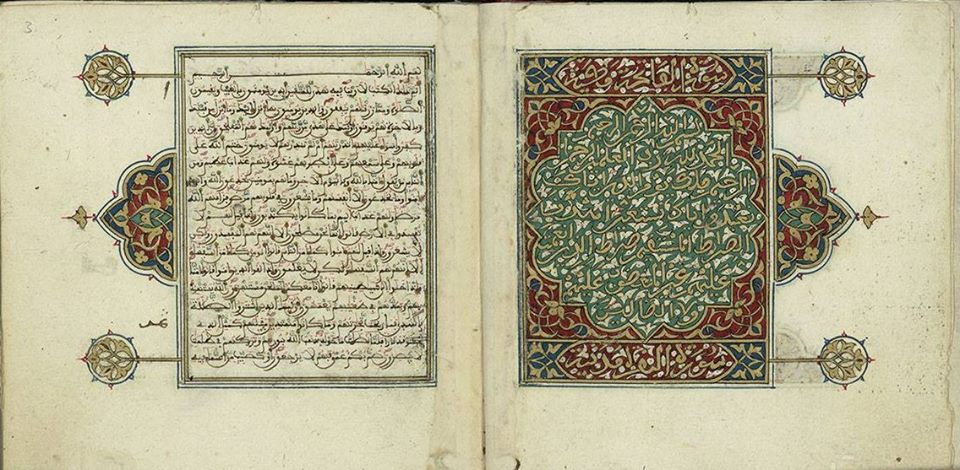 سورة الفاتحة
بسم الله الرحمن الرحيم
الحمد لله رب العلمين
الرحمن الرحيم ملك يوم الدين إياك
نعبد وإياك نستعين اهدنا
الصراط المستقيم صراط الذين أنعمت
عليهم غير المغضوب عليهم
ولا الضالين
سورة البقرة مدنية
3
بسم الله الرحمن الرحيم
الم ذلك الكتب لا ريب فيه هدى للمتقين الذين يومنون بالغيب ويقيمون
الصلوة ومما رزقنهم ينفقون والذين يومنون بما أنزل إليك وما أنزل من قبلك
وبالاخرة هم يوقنون أولئك على هدى من ربهم وأولئك هم المفلحون إن الذين
كفروا سواء عليهم ءانذرتهم أم لم تنذرهم لا يومنون ختم الله على
قلوبهم وعلى سمعهم وعلى أبصرهم غشوة ولهم عذاب عظيم ومن
الناس من يقول ءامنا بالله وباليوم الاخر وما هم بمومنين يخدعون الله والذين
ءامنوا وما يخدعون إلا أنفسهم وما يشعرون في قلوبهم مرض فزادهم الله
مرضا ولهم عذاب أليم بما كانوا يكذبون وإذا قيل لهم لا
تفسدوا في الارض قالوا إنما نحن مصلحون ألا إنهم هم المفسدون ولكن
لا يشعرون وإذا قيل لهم ءامنوا كما ءامن الناس قالوا أنومن كما ءامن السفهاء
ألا إنهم هم السفهاء ولكن لا يعلمون وإذا لقوا الذين ءامنوا قالوا ءامنا
وإذا خلوا إلى شيطينهم قالوا إنا معكم إنما نحن مستهزءون الله يستهزئ
بهم ويمدهم في طغينهم يعمهون أولئك الذين اشتروا الضللة
بالهدى فما ربحت تجرتهم وما كانوا مهتدين مثلهم كمثل الذي
استوقد نارا فلما أضاءت ما حوله ذهب الله بنورهم وتركهم في ظلمت
لا يبصرون صم بكم عمي فهم لا يرجعون أو كصيب من السماء فيه